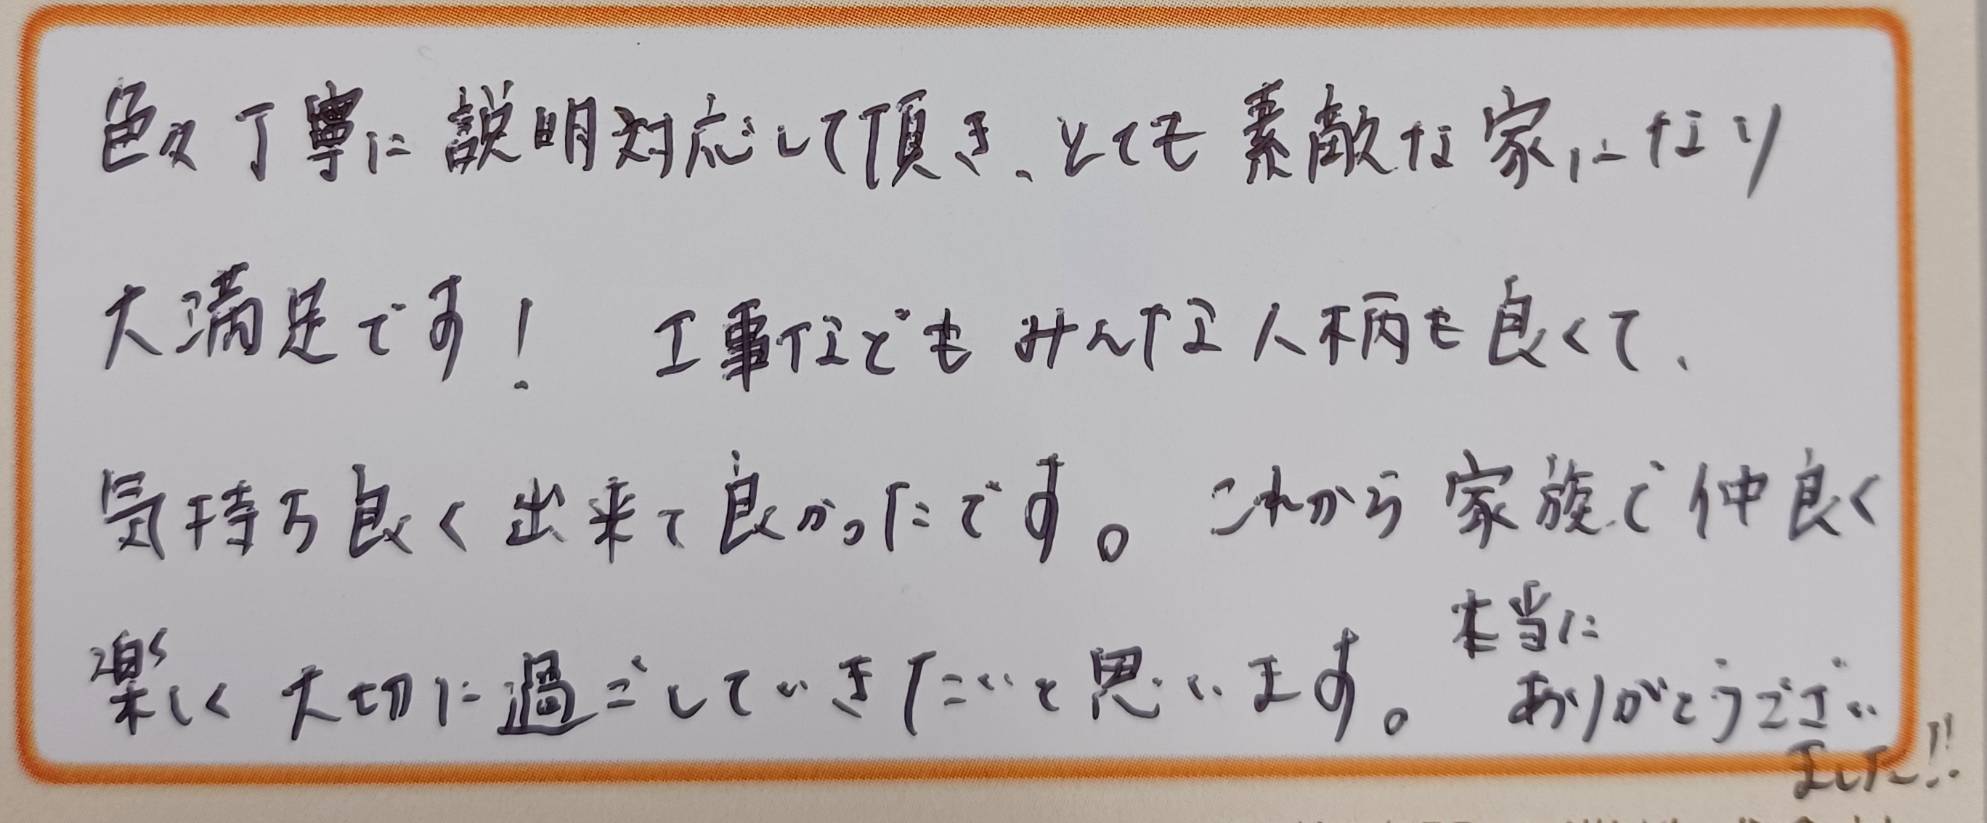 色々丁寧に説明対応して頂き、とても素敵な家になり
大満足です! 工事などもみんな人柄も良くて、
気持ち良く出来て良かったです。これから家族で仲良く
楽しく大切に過ごしていきたいと思います。
本当に
ありがとうござい
ました!!